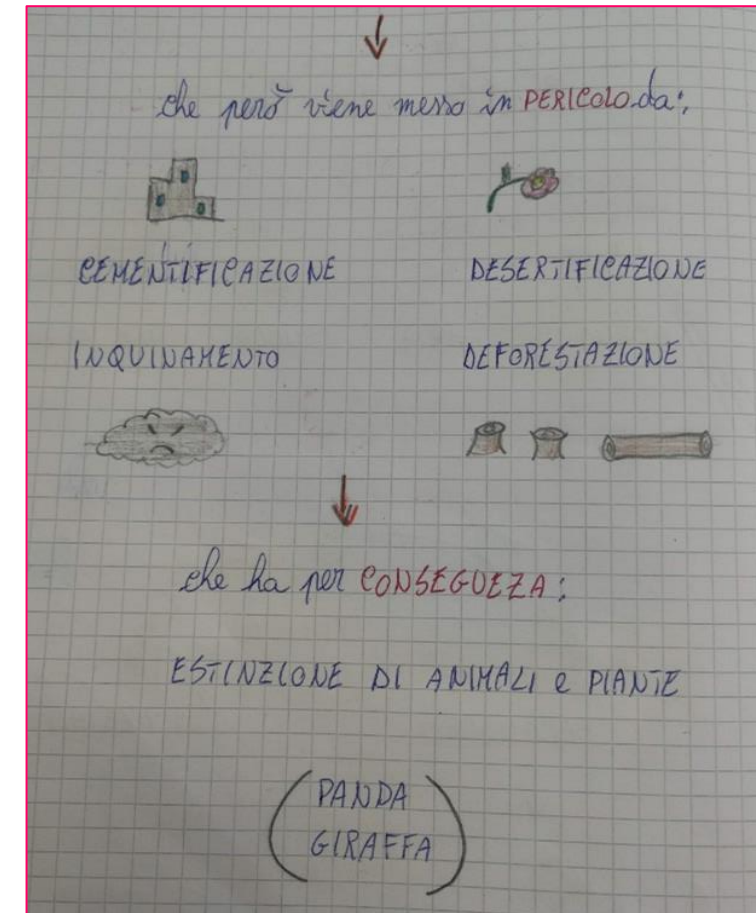 che però viene messo in PERICOLO da:
CEMENTIFICAZIONE DESERTIFICAZIONE
INQUINAMENTO DEFORESTAZIONE
che ha per CONSEGUEZA:
ESTINZIONE DI ANIMALI e PIANTE
(PANDA
GIRAFFA)